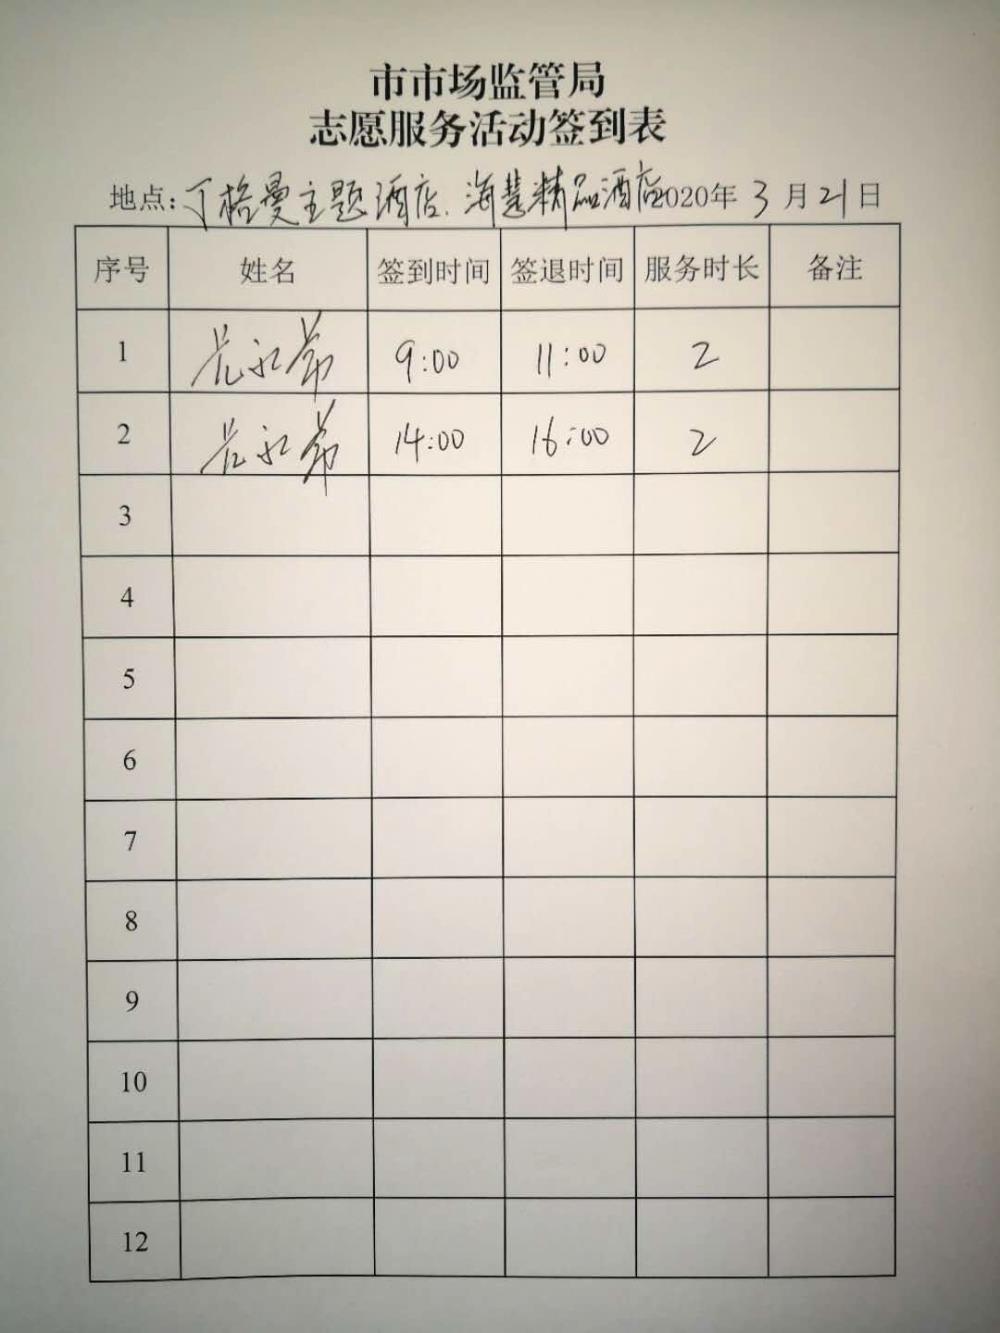 市市场监管局
志愿服务活动签到表
地点:丁格曼主题酒店.海慧精品酒店2020年3月21日
序号 姓名 签到时间 签退时间 服务时长 备注
1 9:00 11:00 2
2 14:00 16:00 2
3
4
5
6
7
8
9
10
11
12